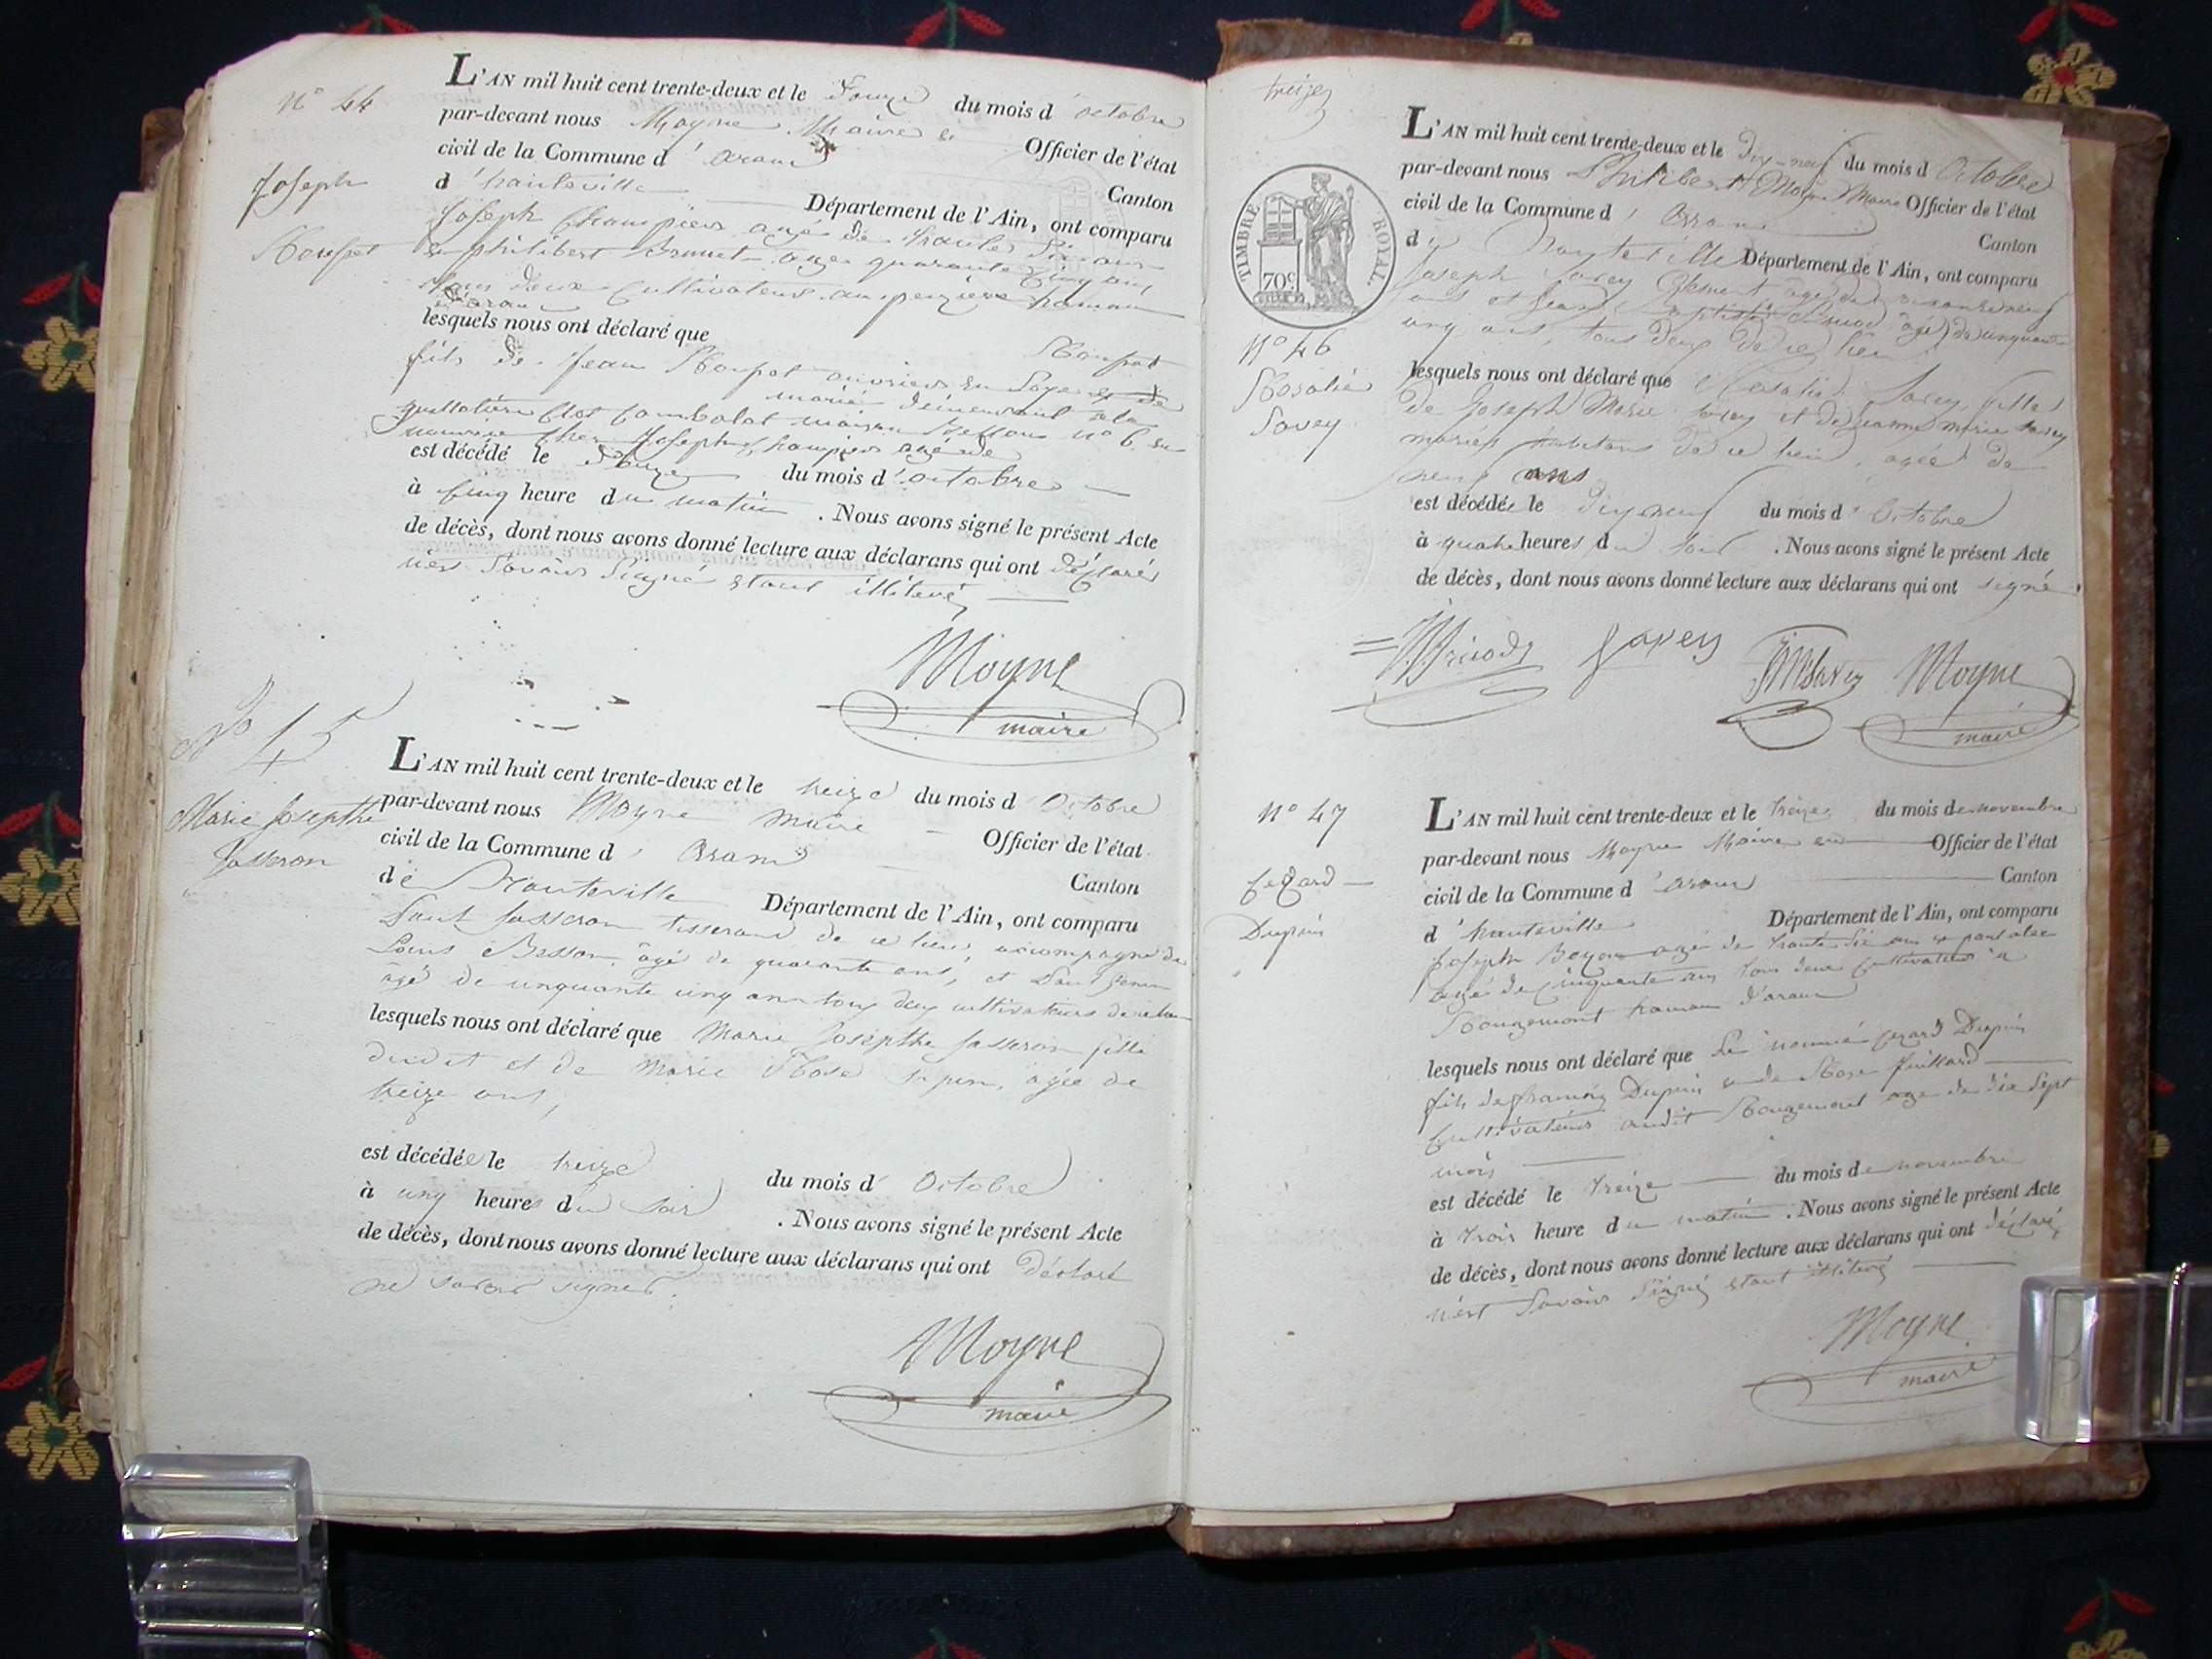 N° 44
Joseph
L'AN mil huit cent trente-deux et le Douze du mois d'octobre
par-devant nous Moyne Maire Officier de l'état
civil de la Commune d'aranc Canton
d'hauteville Département de l'Ain, ont comparu
Joseph Champier agé de trante Six ans
philibert agé quarante Cinq ans
Tous deux Cultivateurs hamau
D'aranc
lesquels nous ont déclaré que
fils de Jean ouvrier en Soye
marié demeurant a la
maison n° 6 en
nourrice chez Joseph Champier agé de
est décédé le Douze du mois d'octobre
à Cinq heure du matin . Nous avons signé le présent Acte
de décès, dont nous avons donné lecture aux déclarans qui ont déclaré
Savoir Signé etant illiteré
Moyne
maire
N° 45
Marie Josephte
Jasseron
L'AN mil huit cent trente-deux et le treize du mois d'Octobre
par-devant nous Moyne Maire Officier de l'état
civil de la Commune d'Aranc Canton
de Hauteville Département de l'Ain, ont comparu
Paul Jasseron tisserand de ce lieu, accompagné de
Louis Besson, âgé de quarante ans, et Paul
agé de cinquante cinq ans tous deux cultivateurs de ce lieu
lesquels nous ont déclaré que Marie Josephte Jasseron fille
dudit et de Marie Rose agée de
treize ans,
est décédée le treize du mois d'Octobre
à cinq heures du soir . Nous avons signé le présent Acte
de décès, dont nous avons donné lecture aux déclarans qui ont déclaré
ne savoir signer.
Moyne
maire
treize
TIMBRE ROYAL
70c
N° 46
Rosalie
Savey
L'AN mil huit cent trente-deux et le Dix-neuf du mois d'Octobre
par-devant nous Philibert Moyne Maire Officier de l'état
civil de la Commune d'Aranc Canton
de Hauteville Département de l'Ain, ont comparu
Joseph Savey Clement agé de
ans et Jean Baptiste agé de cinquante
cinq ans, tous deux de ce lieu
lesquels nous ont déclaré que Rosalie Savey fille
de Joseph Marie Savey et de Jeanne Marie Savey
mariés habitans de ce lieu, agée de
neuf ans
est décédée le dix neuf du mois d'Octobre
à quatre heures du soir . Nous avons signé le présent Acte
de décès, dont nous avons donné lecture aux déclarans qui ont signé
Savey JMSavey Moyne
maire
N° 47
Cezard
Dupuis
L'AN mil huit cent trente-deux et le treize du mois de novembre
par-devant nous Moyne Maire Officier de l'état
civil de la Commune d'aranc Canton
d'hauteville Département de l'Ain, ont comparu
Joseph agé de trante Six ans
agé de Cinquante ans tous deux Cultivateurs a
Rougemont hamau d'aranc
lesquels nous ont déclaré que Le nommé Cezard Dupuis
fils de francois Dupuis de Rose Juillard
Cultivateurs audit Rougemont age de dix Sept
mois
est décédé le treize du mois de novembre
à trois heure du matin . Nous avons signé le présent Acte
de décès, dont nous avons donné lecture aux déclarans qui ont déclaré
Savoir Signé etant illiteré
Moyne
maire